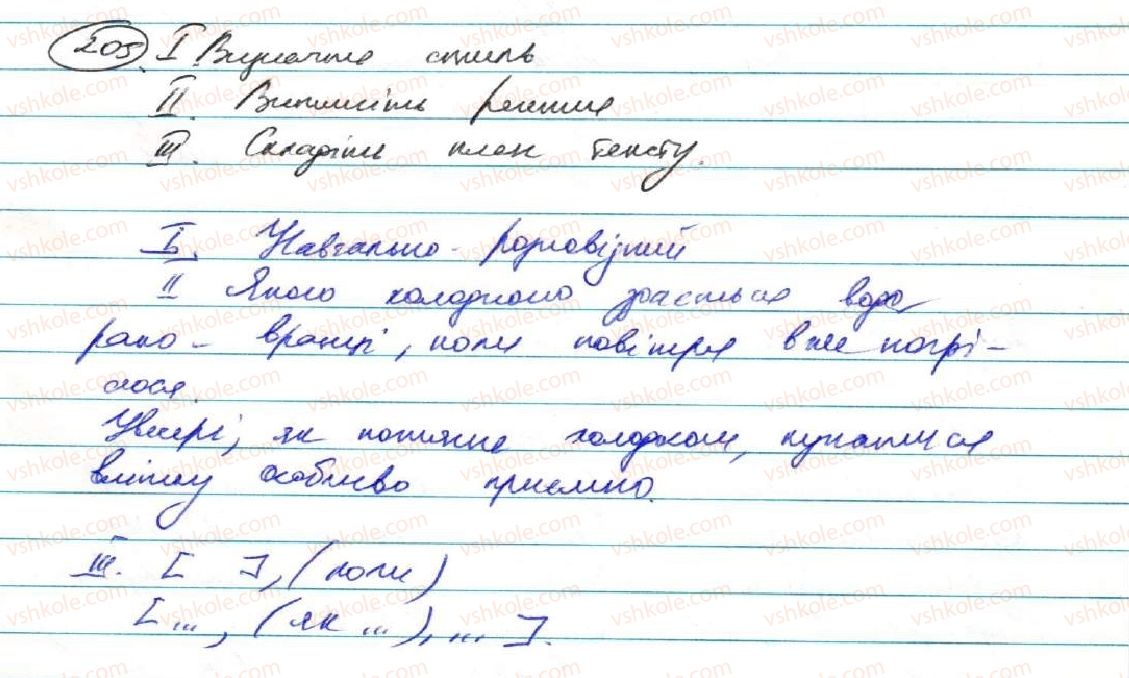 205. I Визначте стиль
II. Випишіть речення
III. Складіть план тексту.
I. Навчально-розповідний
II Якою холодною здається вода
рано-вранці, коли повітря вже нагрі-
лося.
Увечері, як потягне холодком, купатися
влітку особливо приємно.
III. [ ], (коли)
[..., (як ...), ... ].